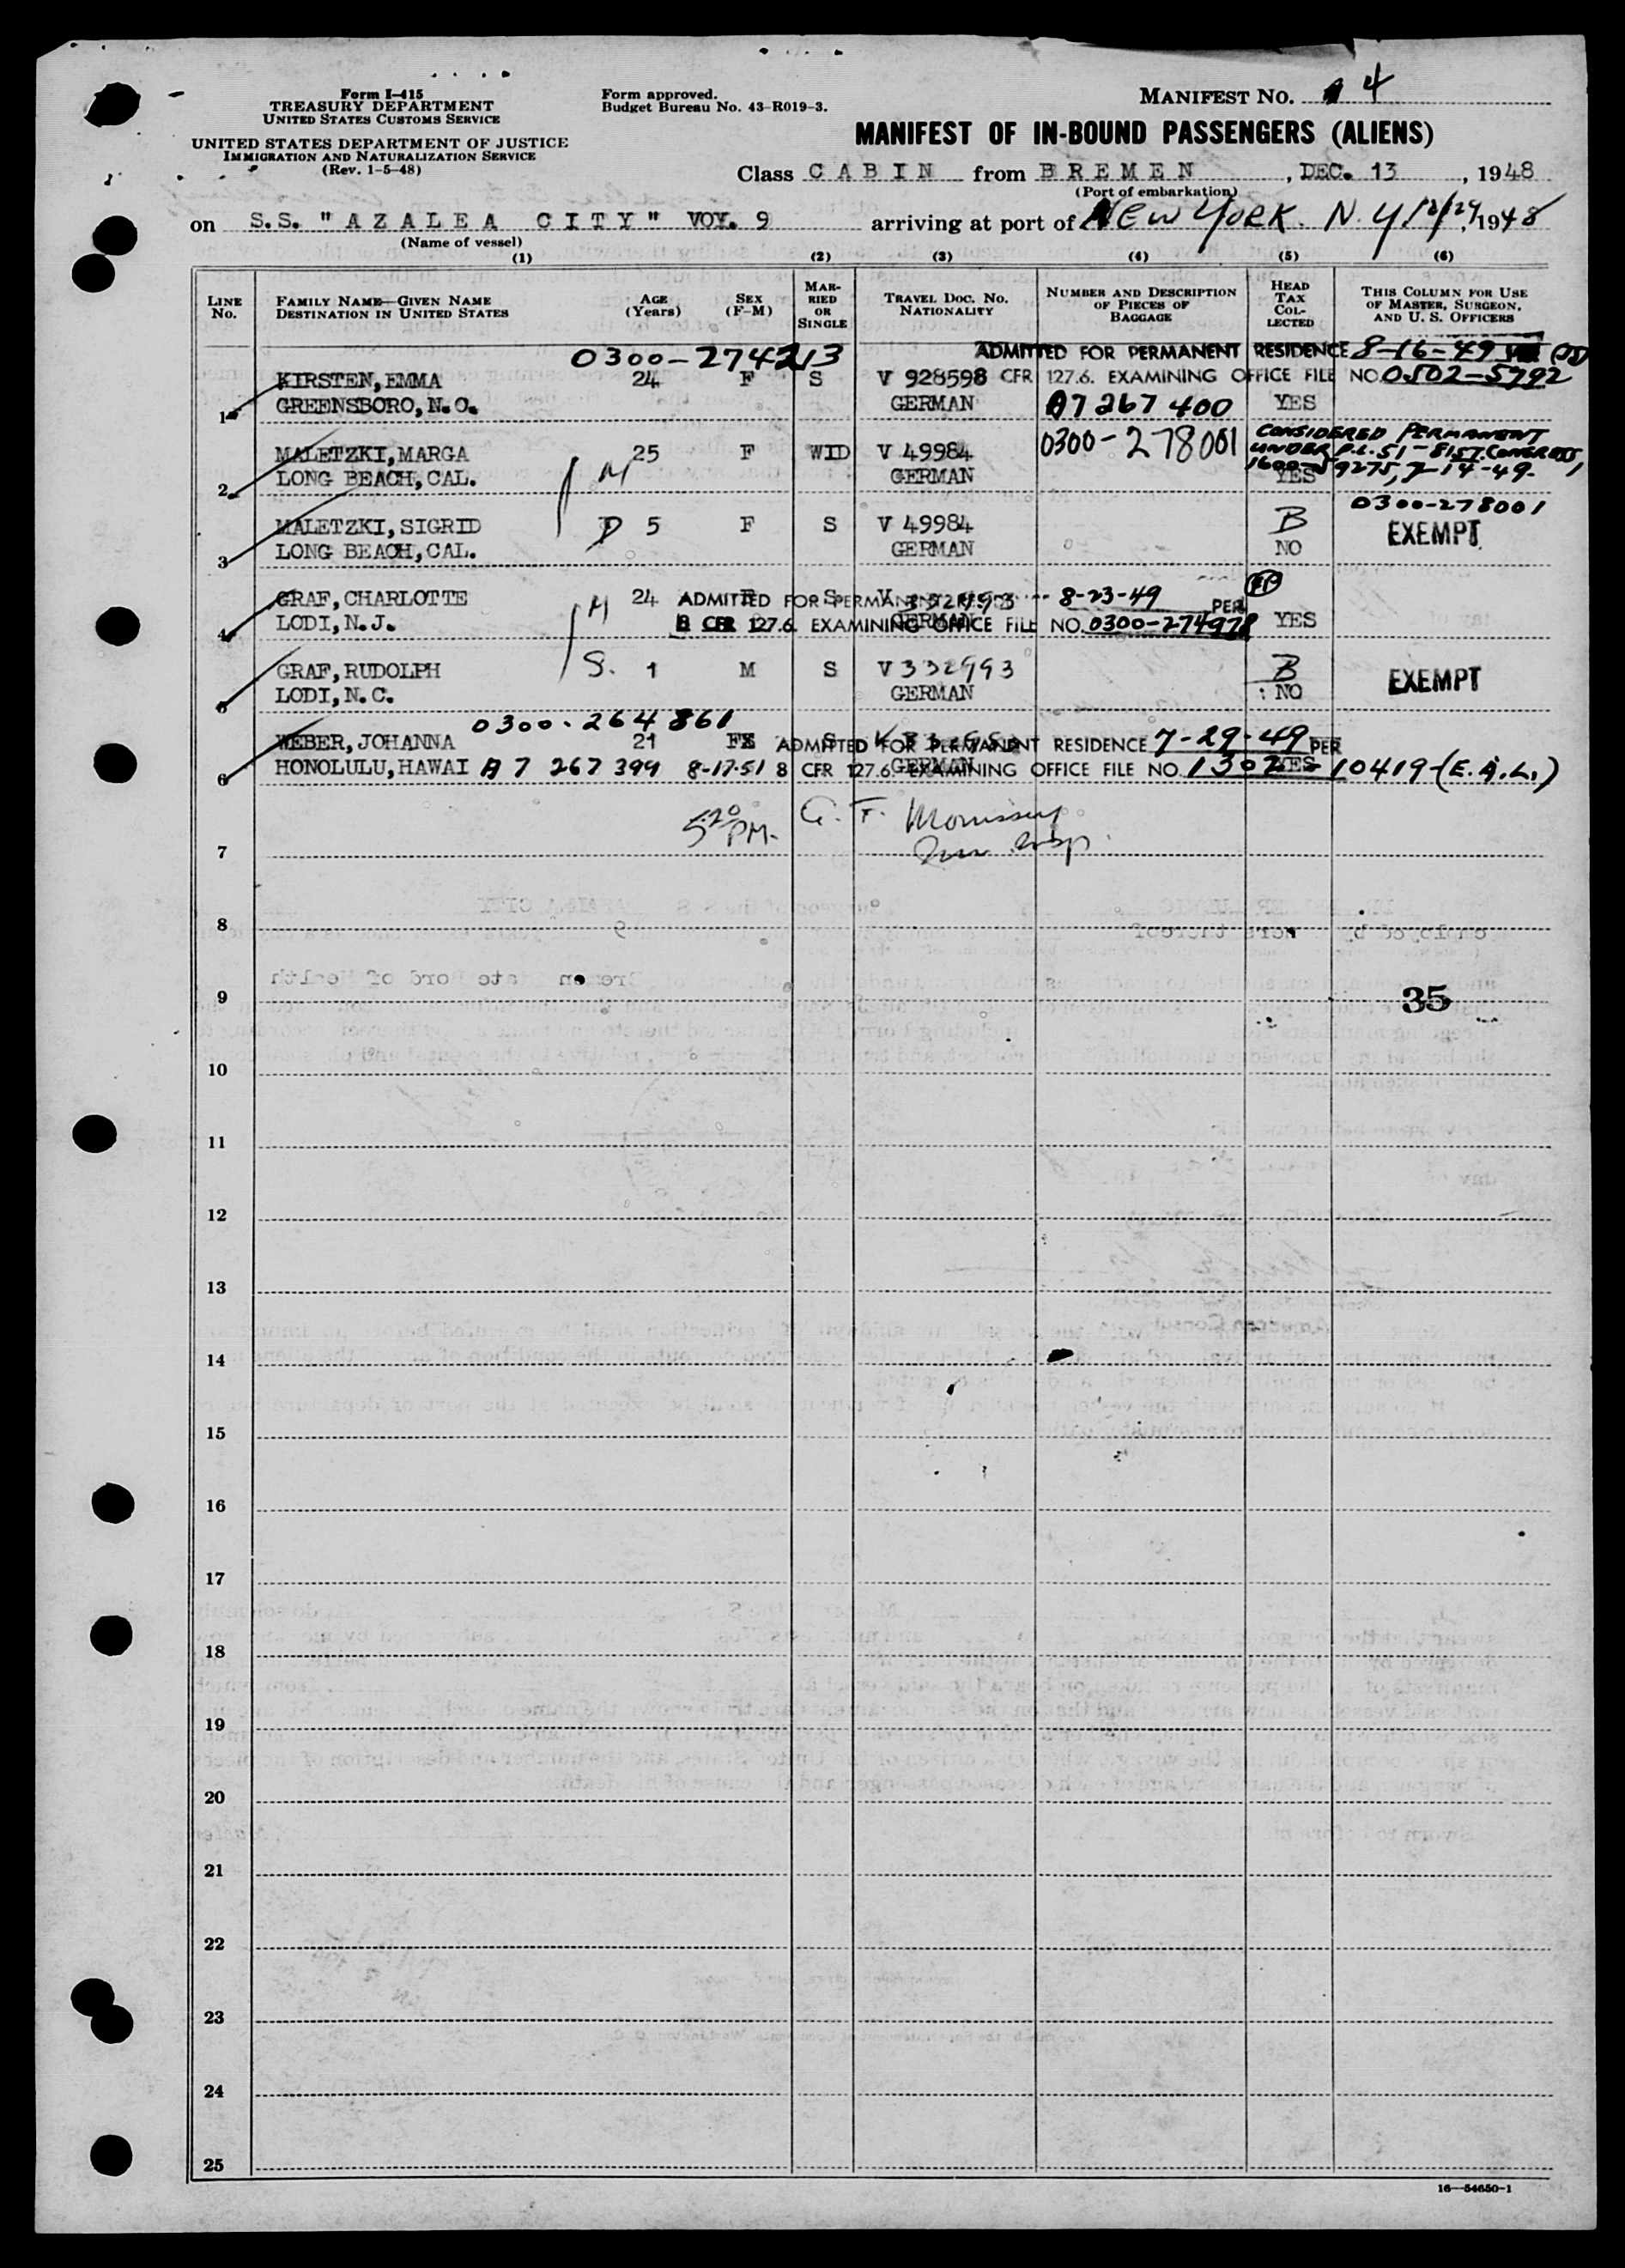 Form I-415
TREASURY DEPARTMENT
UNITED STATES CUSTOMS SERVICE
UNITED STATES DEPARTMENT OF JUSTICE
IMMIGRATION AND NATURALIZATION SERVICE
(Rev. 1-5-48)
Form approved.
Budget Bureau No. 43-R019-3.
MANIFEST NO. 4
MANIFEST OF IN-BOUND PASSENGERS (ALIENS)
Class CABIN from BREMEN, DEC. 13, 1948
(Port of embarkation)
on S.S. "AZALEA CITY" VOY. 9 arriving at port of NEW YORK. N.Y 12/29, 1948
(Name of vessel)
(1) (2) (3) (4) (5) (6)
LINE No. FAMILY NAME—GIVEN NAME DESTINATION IN UNITED STATES AGE (Years) SEX (F-M) MARRIED OR SINGLE TRAVEL DOC. NO. NATIONALITY NUMBER AND DESCRIPTION OF PIECES OF BAGGAGE HEAD TAX COLLECTED THIS COLUMN FOR USE OF MASTER, SURGEON, AND U. S. OFFICERS
0300-274213 ADMITTED FOR PERMANENT RESIDENCE 8-16-49
KIRSTEN, EMMA 24 F S V 928598 CFR 127.6. EXAMINING OFFICE FILE NO. 0502-5792
1 GREENSBORO, N.C. GERMAN A7 267 400 YES
MALETZKI, MARGA 25 F WID V 49984 0300-278001 CONSIDERED PERMANENT UNDER P.L. 51-81ST CONGRESS
2 LONG BEACH, CAL. M GERMAN YES 1600-59275, 7-14-49.
0300-278001
MALETZKI, SIGRID D 5 F S V 49984 B EXEMPT
3 LONG BEACH, CAL. GERMAN NO
GRAF, CHARLOTTE M 24 F S V 332993 ADMITTED FOR PERMANENT 8-23-49 PER
4 LODI, N.J. 8 CFR 127.6. EXAMINING OFFICE FILE NO. 0300-274978 GERMAN YES
GRAF, RUDOLPH S. 1 M S V 332993 B EXEMPT
5 LODI, N.C. GERMAN NO
0300-264861
WEBER, JOHANNA 21 F S ADMITTED FOR PERMANENT RESIDENCE 7-29-49 PER
6 HONOLULU, HAWAI A7 267 399 8-17-51 8 CFR 127.6. EXAMINING OFFICE FILE NO. 1302-10419-(E.A.L.) GERMAN YES
5:20 PM. G. F. Morrissey
Imm. Insp.
7
8
9
35
10
11
12
13
14
15
16
17
18
19
20
21
22
23
24
25
16—54650-1